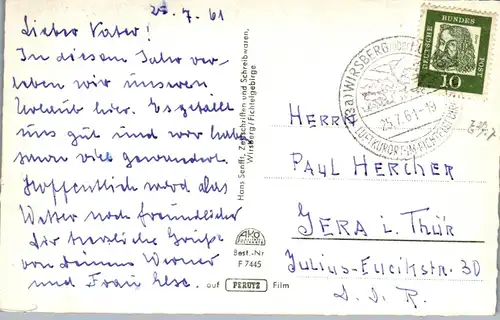 25.7.61
Lieber Vater!
In diesem Jahr ver-
leben wir unseren
Urlaub hier. Es gefällt
uns gut und wir haben
schon viel gewandert.
Hoffentlich wird das
Wetter noch freundlicher
Dir herzliche Grüße
von Deinem Werner
und Frau Else.
Hans Senfft, Zeitschriften und Schreibwaren,
Wirsberg/Fichtelgebirge
AKO
Best.-Nr
F 7445
auf PERUTZ Film
DEUTSCHE BUNDES POST
10
WIRSBERG
25.7.61-19
LUFTKURORT IM FICHTELGEBIRGE
HERRN
PAUL HERCHER
GERA i. Thür
Julius-Fucikstr. 30
D. D. R.